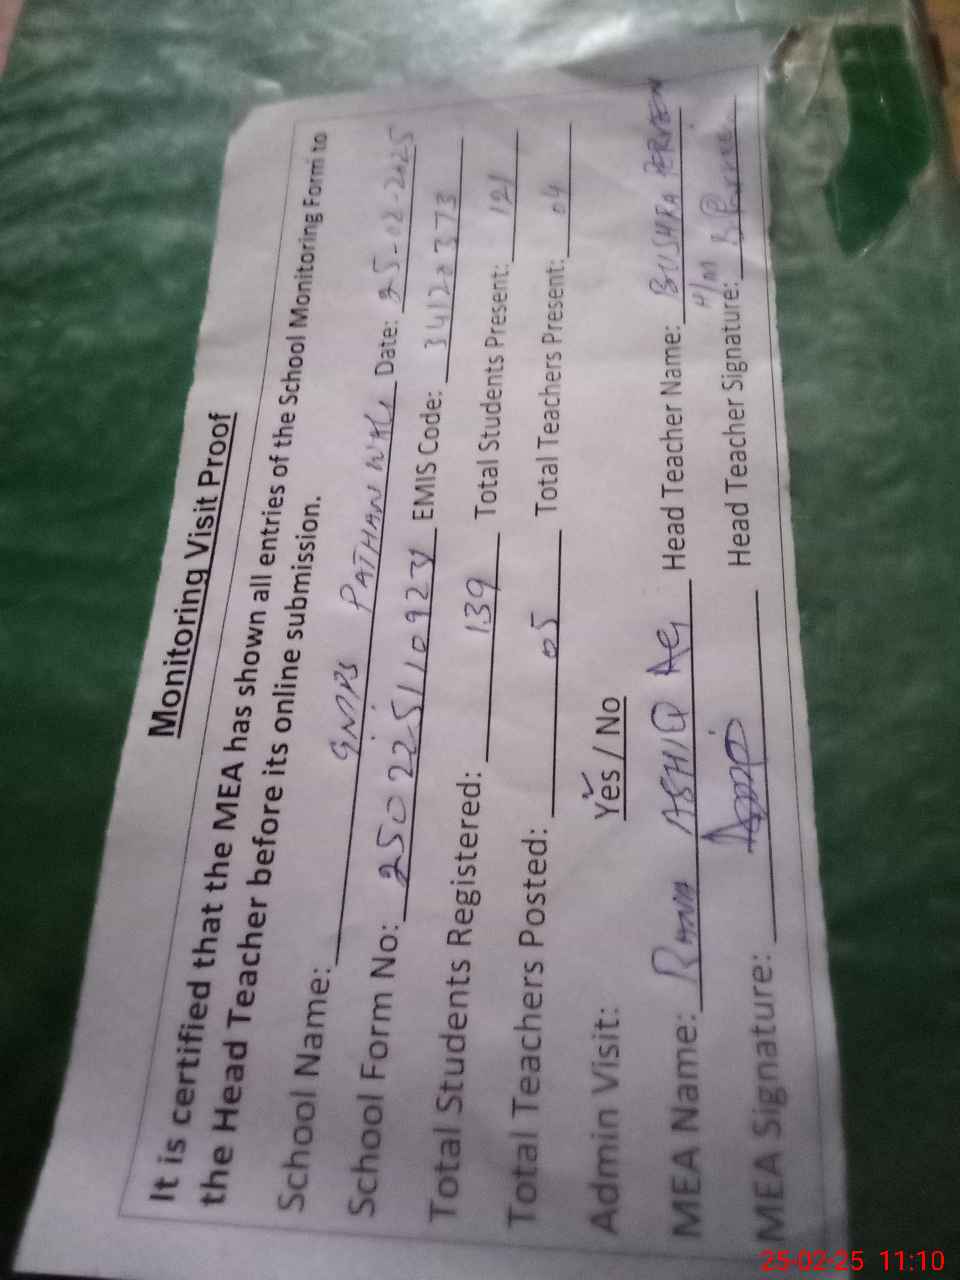 Monitoring Visit Proof
It is certified that the MEA has shown all entries of the School Monitoring Form to
the Head Teacher before its online submission.
School Name: GMPS PATHAN WALI Date: 25-02-2025
School Form No: 2502251109231 EMIS Code: 34120373
Total Students Registered: 139 Total Students Present: 121
Total Teachers Posted: 05 Total Teachers Present: 04
Admin Visit: Yes / No
MEA Name: RANA ASHIQ Ali Head Teacher Name: BUSHRA PERVEEN
H/M
MEA Signature: Head Teacher Signature:
25-02-25 11:10